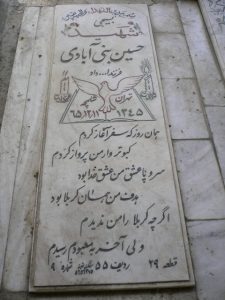 شهید
بسیجی
حسین بنی آبادی
فرزند: داود
تهران
۱۳۴۵
۶۵/۱۲/۱۱
همان روز که سفر آغاز کردم
کبوتروار من پرواز کردم
سر و پا عشق من عشق خدا بود
هدف من همان کربلا بود
اگر چه کربلا را من ندیدم
ولی آخر به معبودم رسیدم
قطعه ۲۹ ردیف ۵۵ شماره ۹